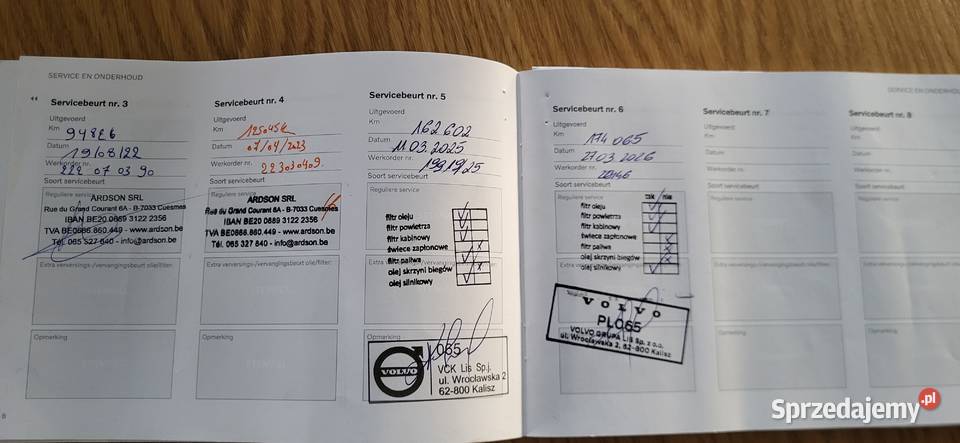 SERVICE EN ONDERHOUD
Servicebeurt nr. 3
Uitgevoerd
Km 94826
Datum 19/08/22
Werkorder nr. 222 07 03 90
Soort servicebeurt
Reguliere service
ARDSON SRL
Rue du Grand Courant 6A - B-7033 Cuesmes
IBAN BE20 0689 3122 2356
TVA BE0666.860.449 - www.ardson.be
Tél. 065 327 640 - info@ardson.be
Extra verversings-/vervangingsbeurt olie/filter:
Opmerking
8
Servicebeurt nr. 4
Uitgevoerd
Km
Datum 07/04/2023
Werkorder nr. 223030409.
Soort servicebeurt
Reguliere service
ARDSON SRL
Rue du Grand Courant 6A - B-7033 Cuesmes
IBAN BE20 0689 3122 2356
TVA BE0666.860.449 - www.ardson.be
Tél. 065 327 640 - info@ardson.be
Extra verversings-/vervangingsbeurt olie/filter:
Opmerking
Servicebeurt nr. 5
Uitgevoerd
Km 162 602
Datum 11.03.2025
Werkorder nr.
Soort servicebeurt
Reguliere service
filtr oleju
filtr powietrza
filtr kabinowy
świece zapłonowe
filtr paliwa
olej skrzyni biegów
olej silnikowy
Extra verversings-/vervangingsbeurt olie/filter:
Opmerking
VOLVO
065
VCK Lis Sp.j.
ul. Wrocławska 2
62-800 Kalisz
SERVICE EN ONDERHOU
Servicebeurt nr. 6
Uitgevoerd
Km 174 065
Datum 27.03.2026
Werkorder nr.
Soort servicebeurt
Reguliere service
tak nie
filtr oleju
filtr powietrza
filtr kabinowy
świece zapłonowe
filtr paliwa
olej skrzyni biegów
olej silnikowy
VOLVO
PL065
VOLVO GRUPA LIS Sp. z o.o.
ul. Wrocławska 2, 62-800 Kalisz
Servicebeurt nr. 7
Servicebeurt nr. 8
Sprzedajemy.pl